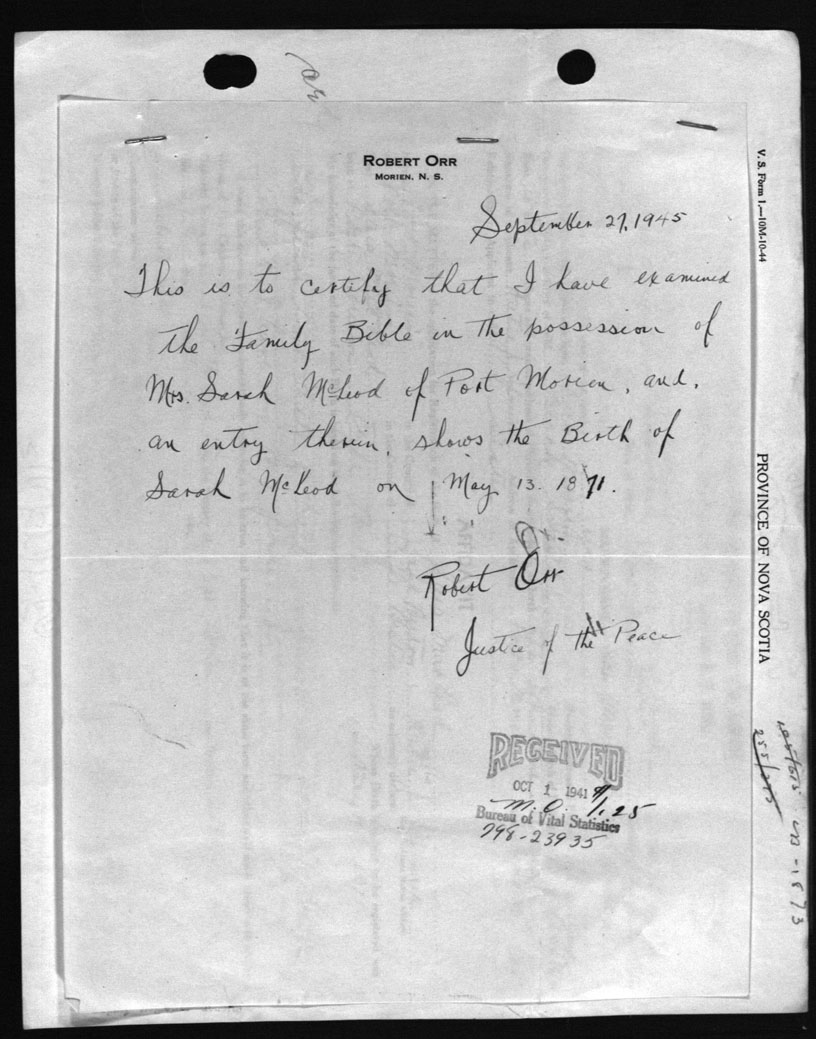 ROBERT ORR
MORIEN, N. S.
September 27, 1945
This is to certify that I have examined
the Family Bible in the possession of
Mrs. Sarah McLeod of Port Morien, and,
an entry therein, shows the Birth of
Sarah McLeod on May 13. 1871.
Robert Orr
Justice of the Peace
RECEIVED
OCT 1 1941
M.O. 1.25
Bureau of Vital Statistics
798-23935
V. S. Form 1.—10M-10-44
PROVINCE OF NOVA SCOTIA